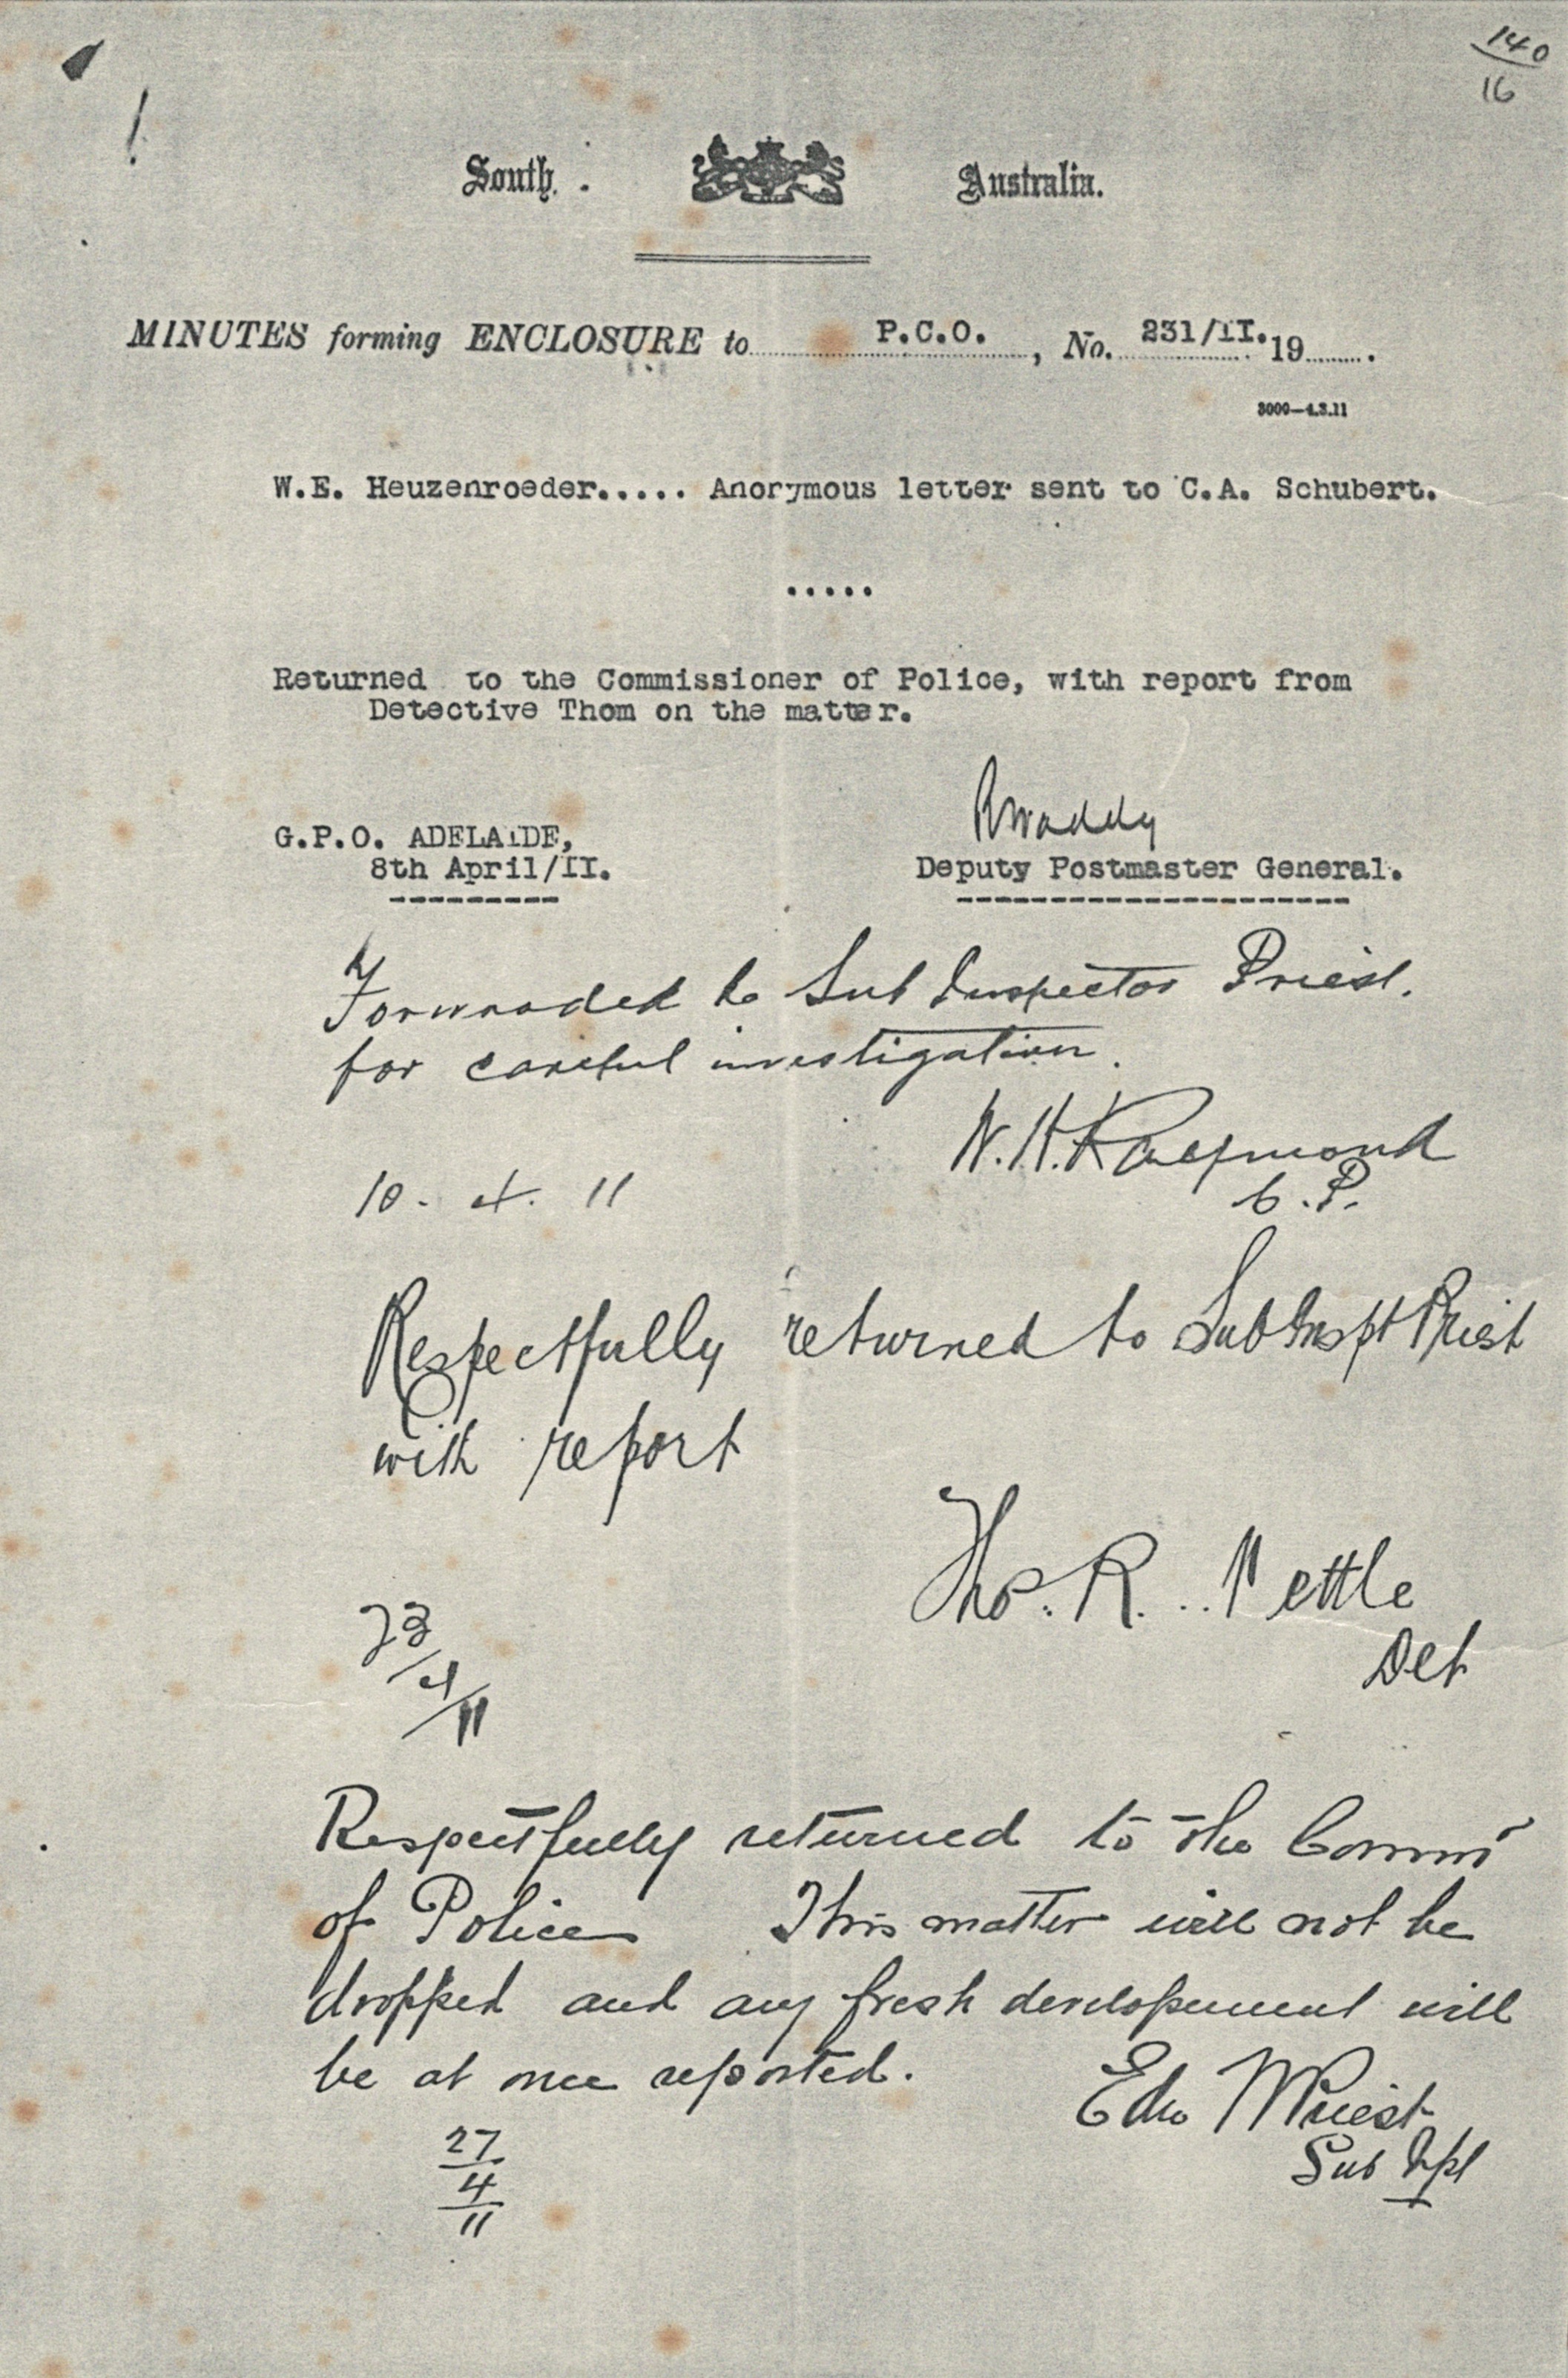 140
16
South. Australia.
MINUTES forming ENCLOSURE to P.C.O., No. 231/II. 19.
3000—4.3.11
W.E. Heuzenroeder..... Anonymous letter sent to C.A. Schubert.
.....
Returned to the Commissioner of Police, with report from
Detective Thom on the matter.
RWaddy
G.P.O. ADELAIDE,
8th April/II.
Deputy Postmaster General.
Forwarded to Sub Inspector Priest.
for careful investigation.
W. H. Raymond
C.P.
10. 4. 11
Respectfully returned to Sub Inspt Priest
with report
Tho. R. Nettle
Det
23/4/11
Respectfully returned to the Commr
of Police This matter will not be
dropped and any fresh developement will
be at once reported.
Edw Priest
Sub Ipt
27
4
11